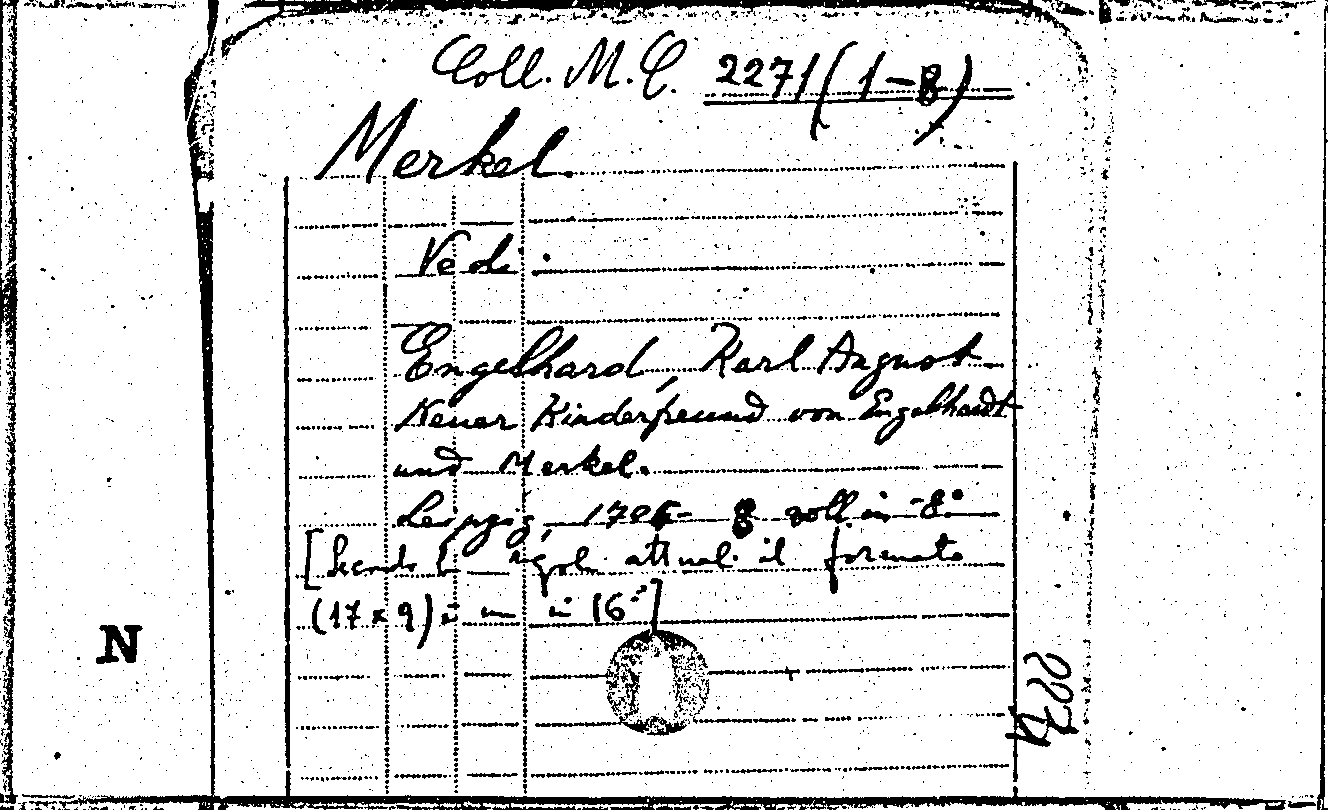 Coll. M. C. 2271 (1-8)
Merkel.
Vedi:
Engelhard, Karl August
Neuer Kinderfreund von Engelhardt
und Merkel.
Leipzig, 8 voll in -8°
[Secondo le regole attuali il formato
(17 x 9) è un in 16°]
N